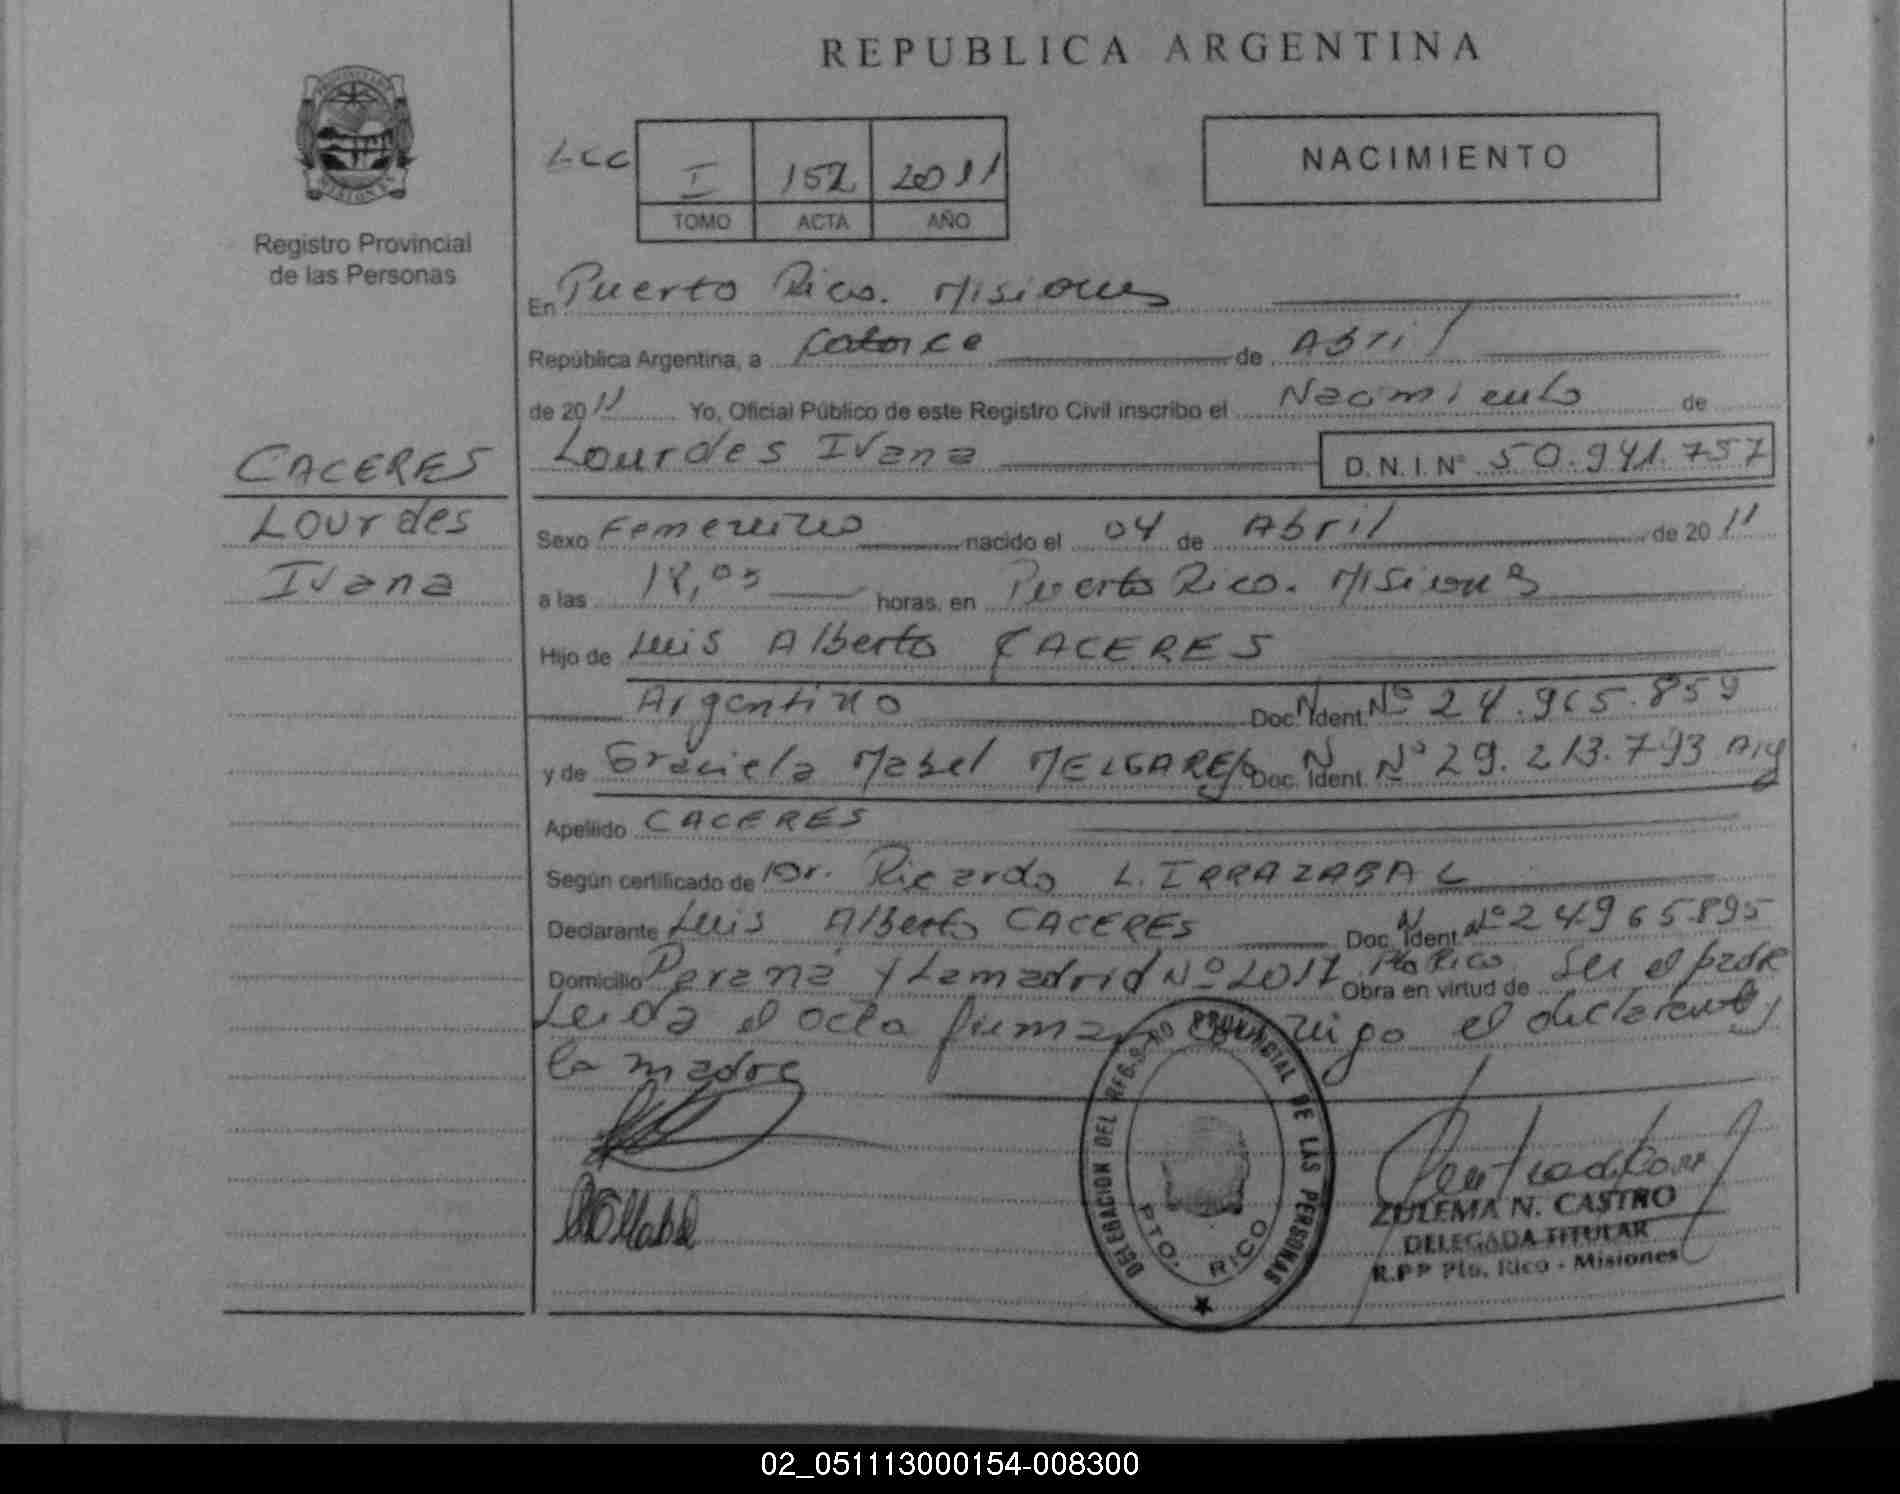 REPUBLICA ARGENTINA
Registro Provincial
de las Personas
LCC
I 152 2011
TOMO ACTA AÑO
NACIMIENTO
En Puerto Rico. Misiones
República Argentina, a Catorce de Abril
de 2011 Yo, Oficial Público de este Registro Civil inscribo el Nacimiento de
Lourdes Ivana D.N.I. Nº 50.941.757
CACERES
Lourdes
Ivana
Sexo Femenino nacido el 04 de Abril de 2011
a las 18,05 horas, en Puerto Rico. Misiones
Hijo de Luis Alberto CACERES
Argentino Doc. N. Ident. Nº 24.965.859
y de Graciela Mabel MELGAREJO Doc. N. Ident. Nº 29.213.793 Arg
Apellido CACERES
Según certificado de Dr. Ricardo L. IRRAZABAL
Declarante Luis Alberto CACERES Doc. N. Ident. Nº 24965895
Domicilio Paraná y Lamadrid Nº 2017 Pto Rico. Obra en virtud de Ser el padre
Leida el acta firman el declarante y
la madre
DELEGACION DEL REGISTRO PROVINCIAL DE LAS PERSONAS
PTO. RICO
ZULEMA N. CASTRO
DELEGADA TITULAR
R.PP Pto. Rico - Misiones
02_051113000154-008300